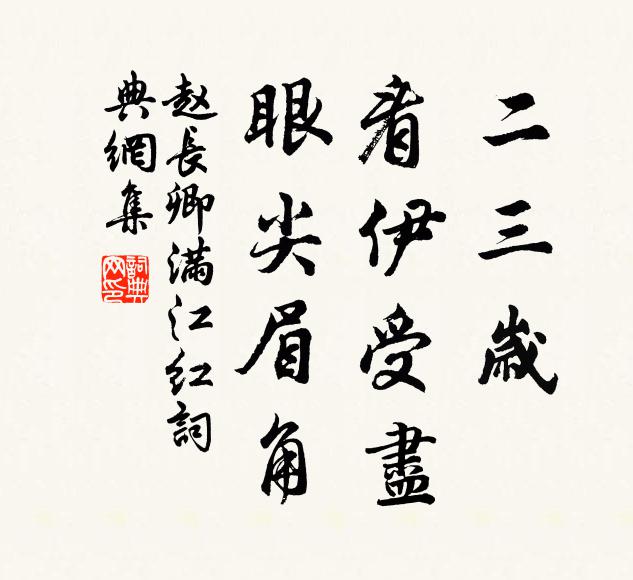 二三歲
看伊受盡
眼尖眉角
赵長卿满江红詞
典網集
詞典网印